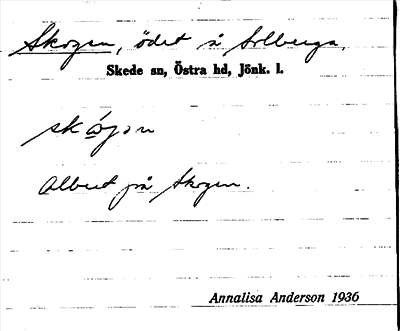 Skogen, ödet å Solberga.
Skede sn, Östra hd, Jönk. l.
Albert på Skogen.
Annalisa Anderson 1936